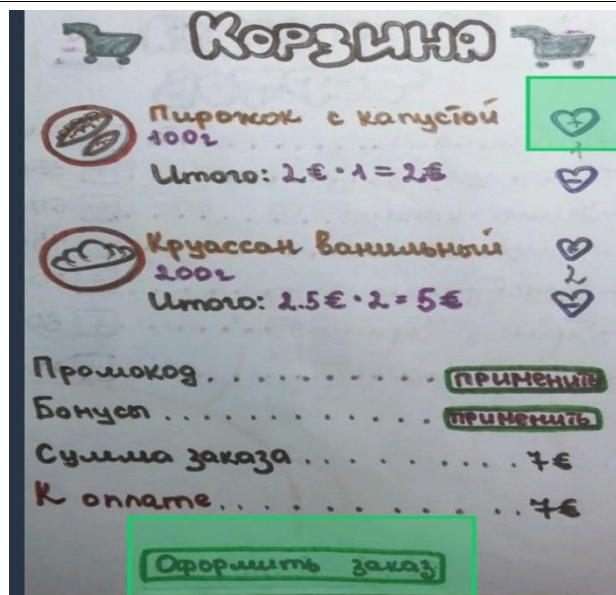 Корзина
Пирожок с капустой
+
100г
1
Итого: 2€·1=2€
-
Круассан ванильный
+
200г
2
Итого: 2.5€·2=5€
-
Промокод.............применить
Бонусы.............применить
Сумма заказа.........7€
К оплате............7€
Оформить заказ